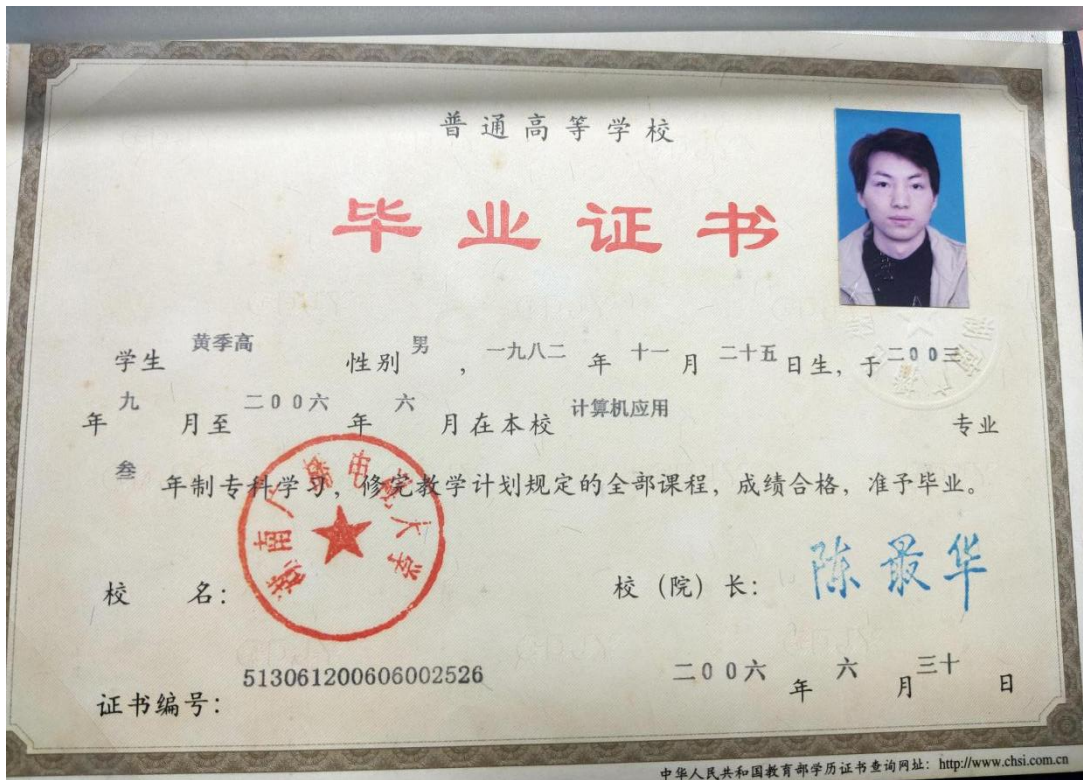 普通高等学校
毕业证书
学生 黄季高 性别 男 , 一九八二 年 十一 月 二十五 日生, 于 二00三
年 九 月至 二00六 年 六 月在本校 计算机应用 专业
叁 年制专科学习, 修完教学计划规定的全部课程, 成绩合格, 准予毕业。
湖南广播电视大学
校 名: 校 (院) 长: 陈最华
513061200606002526
证书编号: 二00六 年 六 月 三十 日
中华人民共和国教育部学历证书查询网址: http://www.chsi.com.cn